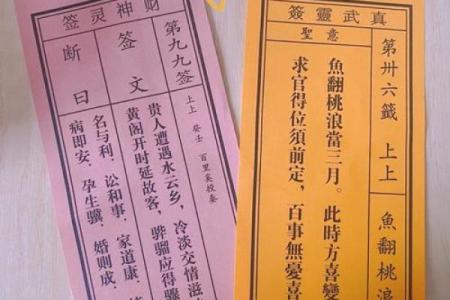 财神灵签
第九九签
上上 癸壬 百里奚投秦
签文
贵人遭遇水云乡，冷淡交情滋
黄阁开时延故客，骅骝应得骤
断曰
名与利，讼和事，家道康，
病即安，孕生骥，婚则成，
真武靈簽
第卅六籤 上上 魚翻桃浪
聖意
魚翻桃浪當三月。此時方喜變
求官得位須前定，百事無憂喜